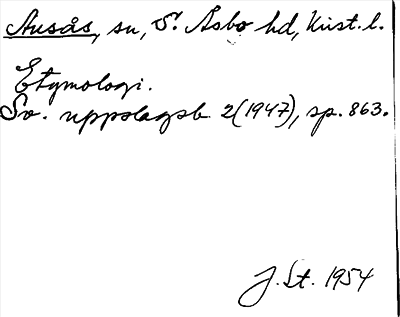 Ausås, sn, S. Åsbo hd, Krist. l.
Etymologi.
Sv. uppslagsb. 2(1947), sp. 863.
J. St. 1954